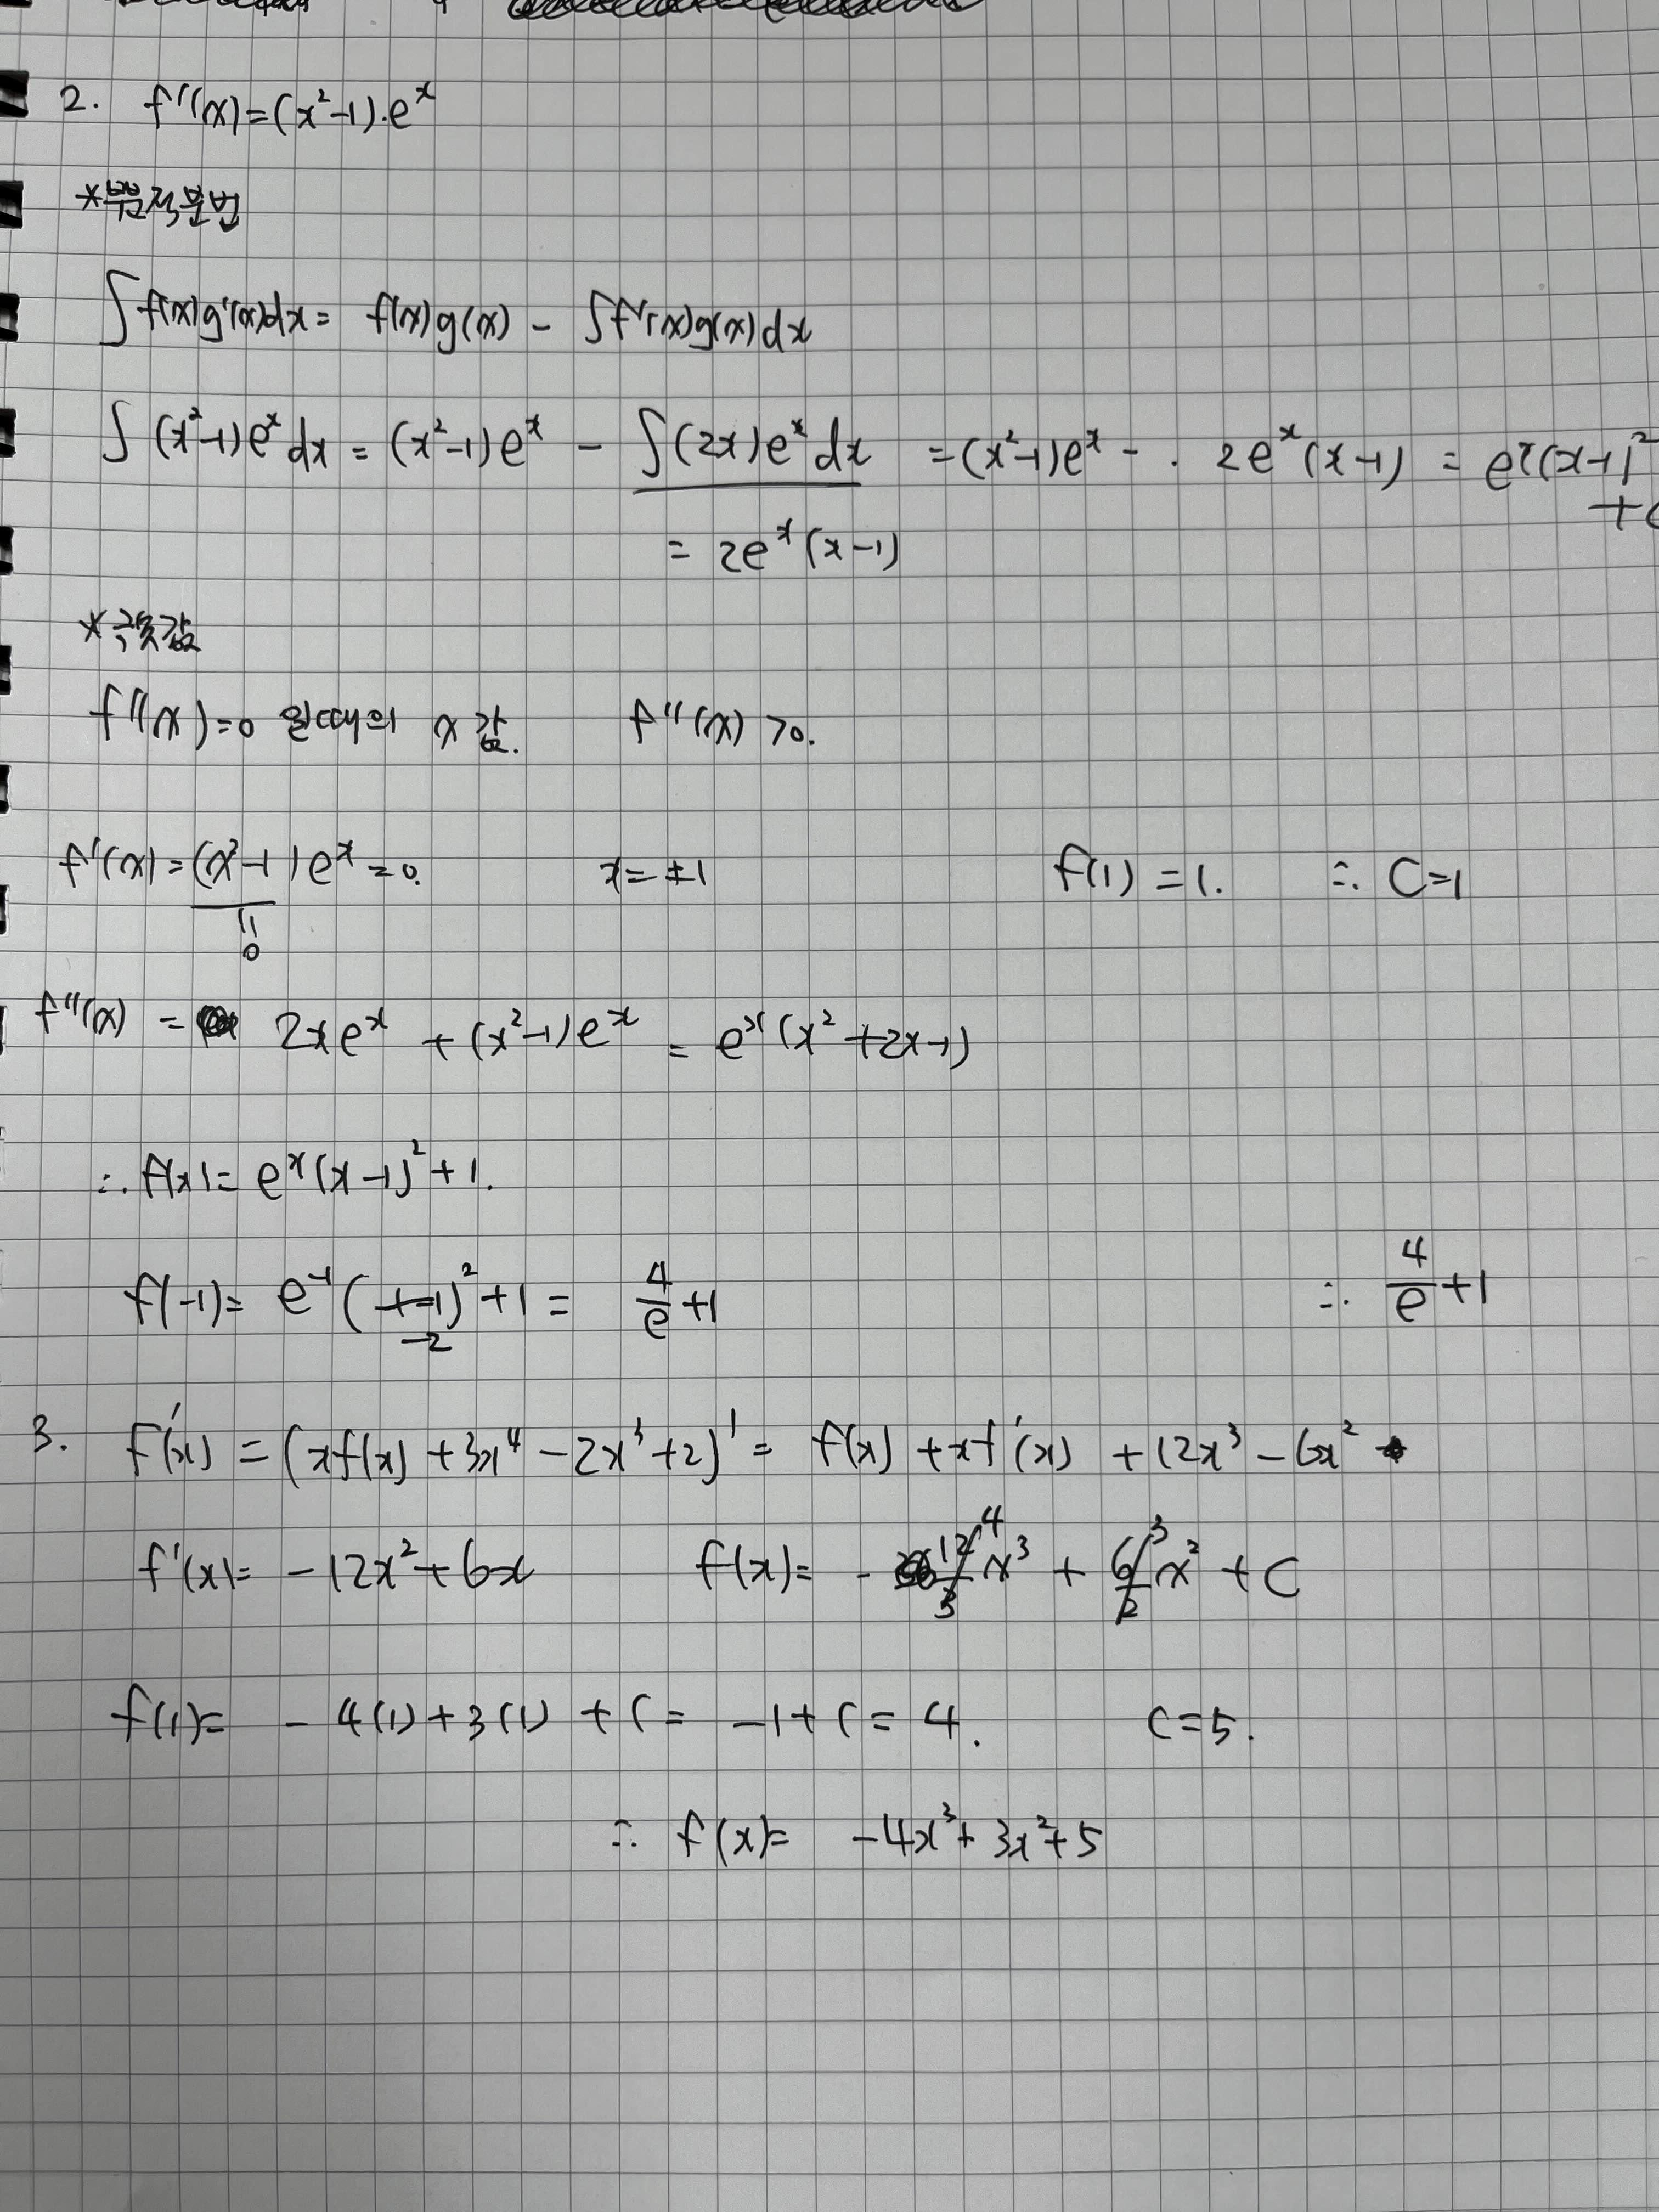 2. f'(x)=(x²-1)·eˣ
*부분적분법
∫f(x)g'(x)dx = f(x)g(x) - ∫f'(x)g(x)dx
∫(x²-1)eˣdx = (x²-1)eˣ - ∫(2x)eˣdx = (x²-1)eˣ - · 2eˣ(x-1) = eˣ(x-1)²
+C
= 2eˣ(x-1)
*극솟값
f'(x)=0 일때의 x값. f''(x)>0.
f'(x)=(x²-1)eˣ=0. x=±1 f(1)=1. ∴ C=1
||
0
f''(x) = 2xeˣ + (x²-1)eˣ = eˣ(x²+2x-1)
∴ f(x)= eˣ(x-1)²+1.
f(-1)= e⁻¹( )²+1 = 4/e +1 ∴ 4/e +1
-2
3. F'(x) = (xf(x)+3x⁴-2x³+2)' = f(x)+xf'(x)+12x³-6x²
f'(x)= -12x²+6x f(x)= -12/3 4 x³ + 6/2 3 x² + C
f(1)= -4(1)+3(1)+C = -1+C = 4. C=5.
∴ f(x)= -4x³+3x²+5